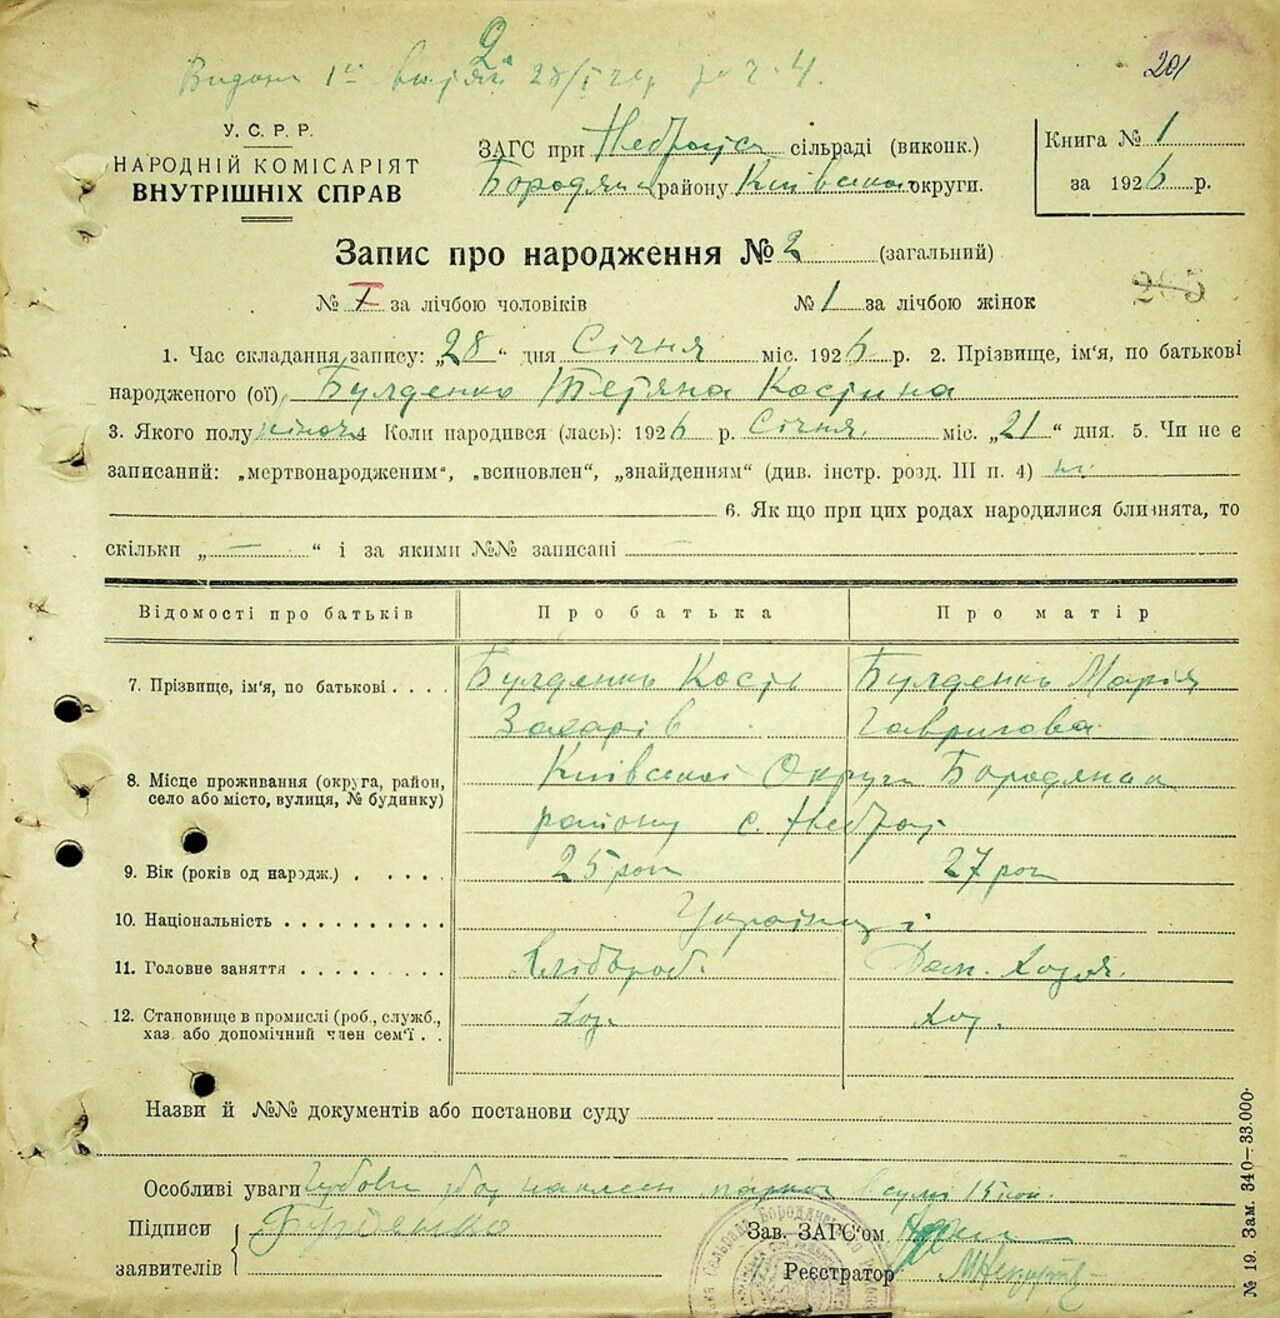 201
У. С. Р. Р.
НАРОДНІЙ КОМІСАРІЯТ
ВНУТРІШНІХ СПРАВ
ЗАГС при сільраді (виконк.)
Бородян району Київської округи.
Книга № 1
за 1926 р.
Запис про народження № 2 (загальний)
№ за лічбою чоловіків № 1 за лічбою жінок
1. Час складання запису: „28“ дня Січня міс. 1926 р. 2. Прізвище, ім'я, по батькові
народженого (ої) Булденко Тетяна Костина
3. Якого полу жіноч. 4 Коли народився (лась): 1926 р. Січня міс. „21“ дня. 5. Чи не є
записаний: „мертвонародженим“, „всиновлен“, „знайденням“ (див. інстр. розд. III п. 4) ні
6. Як що при цих родах народилися близнята, то
скільки „ — “ і за якими №№ записані —
Відомості про батьків Про батька Про матір
7. Прізвище, ім'я, по батькові . . . . Булденко Кость Булденко Марія
Захарів Гаврилова
8. Місце проживання (округа, район,
село або місто, вулиця, № будинку)
Київської Округи Бородянск
району с.
9. Вік (років од народж.) . . . . . 25 рок 27 рок
10. Національність . . . . . . . . . . Українці
11. Головне заняття . . . . . . . . Хлібороб. Дом. Хозя.
12. Становище в промислі (роб., служб.,
хаз. або допомічний член сем'ї . . Хоз. Хоз.
Назви й №№ документів або постанови суду
Особливі уваги в сумі 15 коп.
Підписи
заявителів
Булденко
Зав. ЗАГС'ом
Реєстратор
№ 19. Зам. 340—33.000.